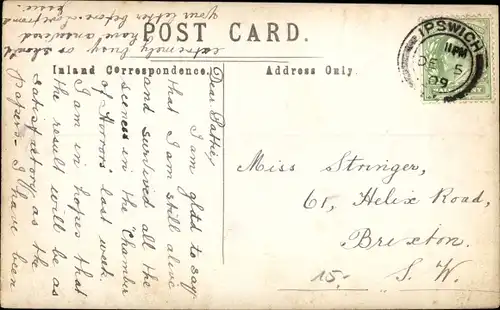 POST CARD.
Inland Correspondence.
Address Only.
IPSWICH
11 PM
DE 5
09
Dear Pattie,
I am glad to say
that I am still alive
and survived all the
scenes in the "Chamber
of Horrors" last week.
I am in hopes that
the result will be as
satisfactory as the
papers - I have been
extremely busy or should
have answered
your letter before. Love from
Jessie.
Miss Stringer,
61, Helix Road,
Brixton.
15. S. W.